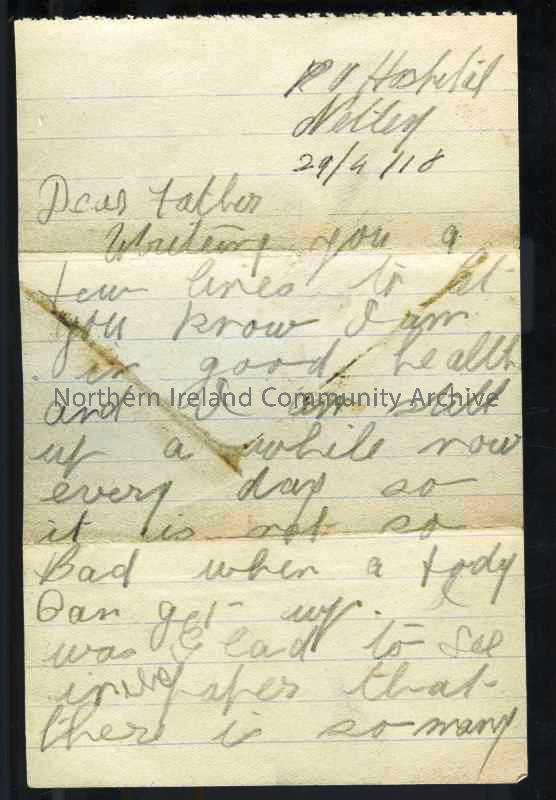 R V Hospital
Netley
29/4/18
Dear Father
Writeing you a
few lines to let
you know I am
in good health
and I am still
up a while now
every day so
it is not so
Bad when a body
Can get up. I
was Glad to see
in the paper that
there is so many
Northern Ireland Community Archive